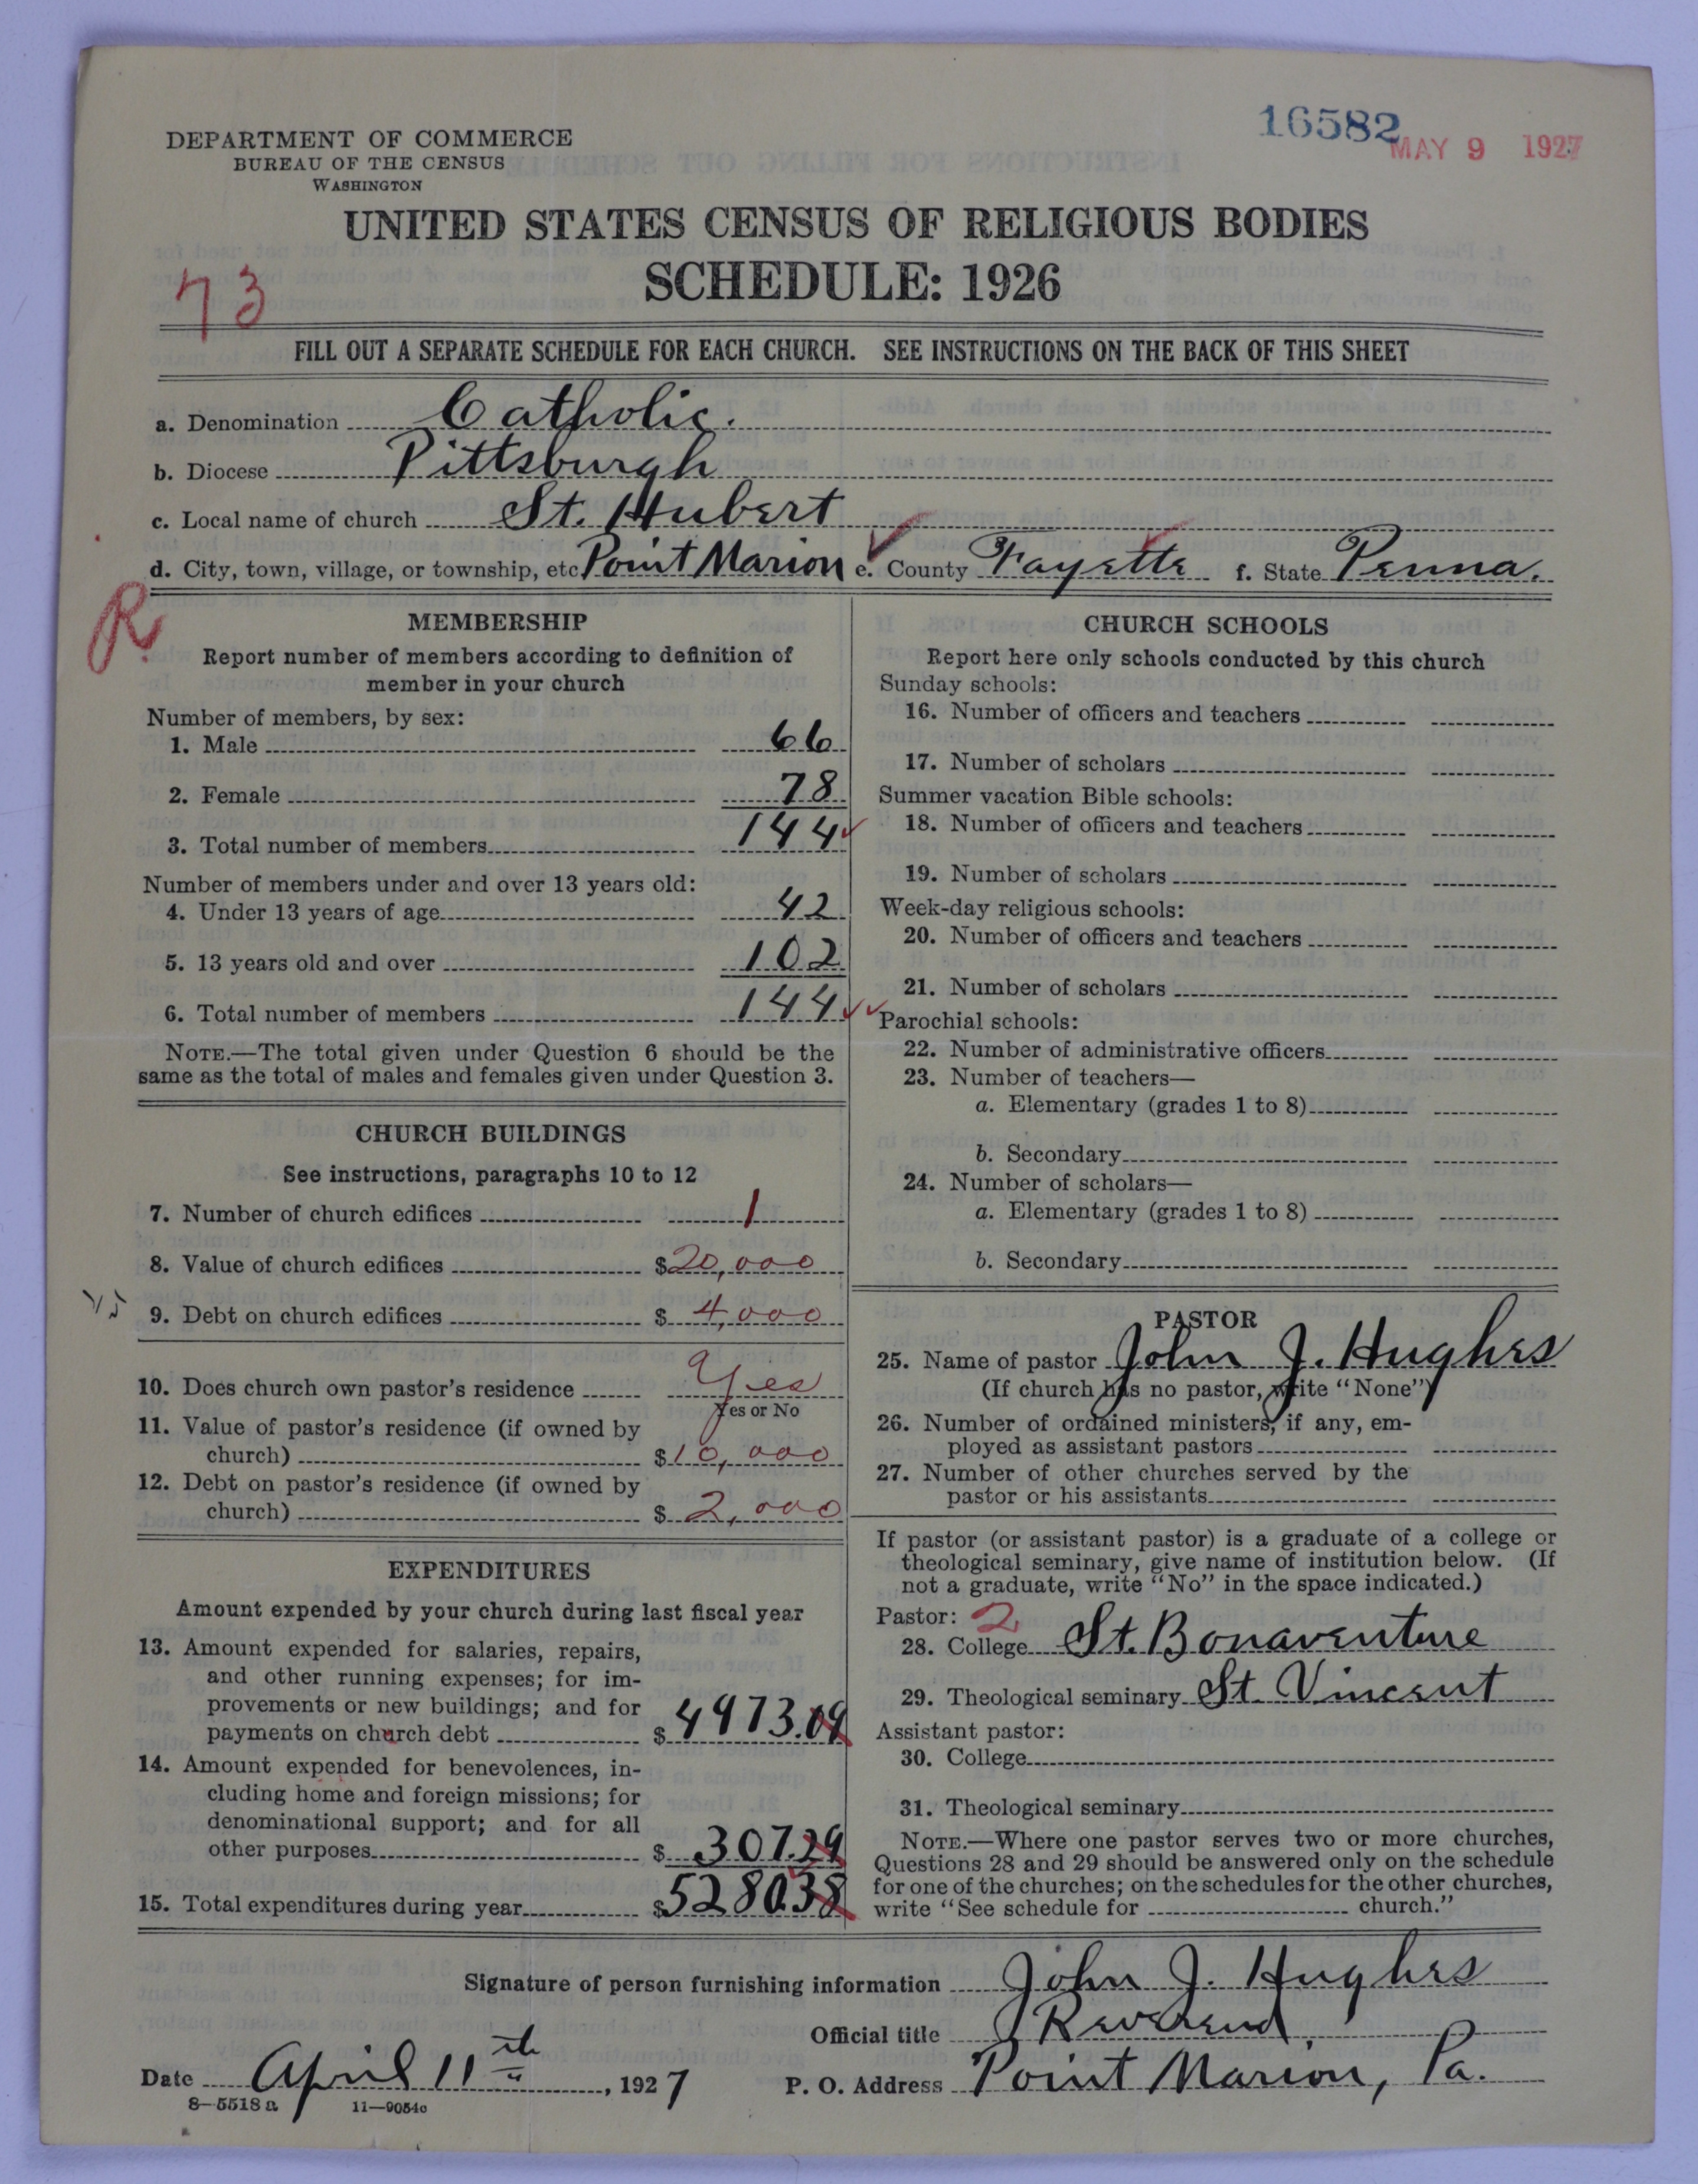 16582
MAY 9 1927
DEPARTMENT OF COMMERCE
BUREAU OF THE CENSUS
WASHINGTON
UNITED STATES CENSUS OF RELIGIOUS BODIES
SCHEDULE: 1926
73
FILL OUT A SEPARATE SCHEDULE FOR EACH CHURCH. SEE INSTRUCTIONS ON THE BACK OF THIS SHEET
a. Denomination Catholic.
b. Diocese Pittsburgh
c. Local name of church St. Hubert
d. City, town, village, or township, etc Point Marion e. County Fayette f. State Penna.
R
MEMBERSHIP
Report number of members according to definition of
member in your church
Number of members, by sex:
1. Male 66
2. Female 78
3. Total number of members 144
Number of members under and over 13 years old:
4. Under 13 years of age 42
5. 13 years old and over 102
6. Total number of members 144
NOTE.—The total given under Question 6 should be the
same as the total of males and females given under Question 3.
CHURCH BUILDINGS
See instructions, paragraphs 10 to 12
7. Number of church edifices 1
8. Value of church edifices $20,000
9. Debt on church edifices $ 4,000
10. Does church own pastor's residence Yes
Yes or No
11. Value of pastor's residence (if owned by
church) $10,000
12. Debt on pastor's residence (if owned by
church) $ 2,000
EXPENDITURES
Amount expended by your church during last fiscal year
13. Amount expended for salaries, repairs,
and other running expenses; for im-
provements or new buildings; and for
payments on church debt $ 4973.09
14. Amount expended for benevolences, in-
cluding home and foreign missions; for
denominational support; and for all
other purposes $ 307.29
15. Total expenditures during year $5280.38
CHURCH SCHOOLS
Report here only schools conducted by this church
Sunday schools:
16. Number of officers and teachers
17. Number of scholars
Summer vacation Bible schools:
18. Number of officers and teachers
19. Number of scholars
Week-day religious schools:
20. Number of officers and teachers
21. Number of scholars
Parochial schools:
22. Number of administrative officers
23. Number of teachers—
a. Elementary (grades 1 to 8)
b. Secondary
24. Number of scholars—
a. Elementary (grades 1 to 8)
b. Secondary
PASTOR
25. Name of pastor John J. Hughes
(If church has no pastor, write "None")
26. Number of ordained ministers, if any, em-
ployed as assistant pastors
27. Number of other churches served by the
pastor or his assistants
If pastor (or assistant pastor) is a graduate of a college or
theological seminary, give name of institution below. (If
not a graduate, write "No" in the space indicated.)
Pastor: 2
28. College St. Bonaventure
29. Theological seminary St. Vincent
Assistant pastor:
30. College
31. Theological seminary
NOTE.—Where one pastor serves two or more churches,
Questions 28 and 29 should be answered only on the schedule
for one of the churches; on the schedules for the other churches,
write "See schedule for church."
Signature of person furnishing information John J. Hughes
Official title Reverend.
Date April 11th, 1927 P. O. Address Point Marion, Pa.
8—5518 a 11—9054c